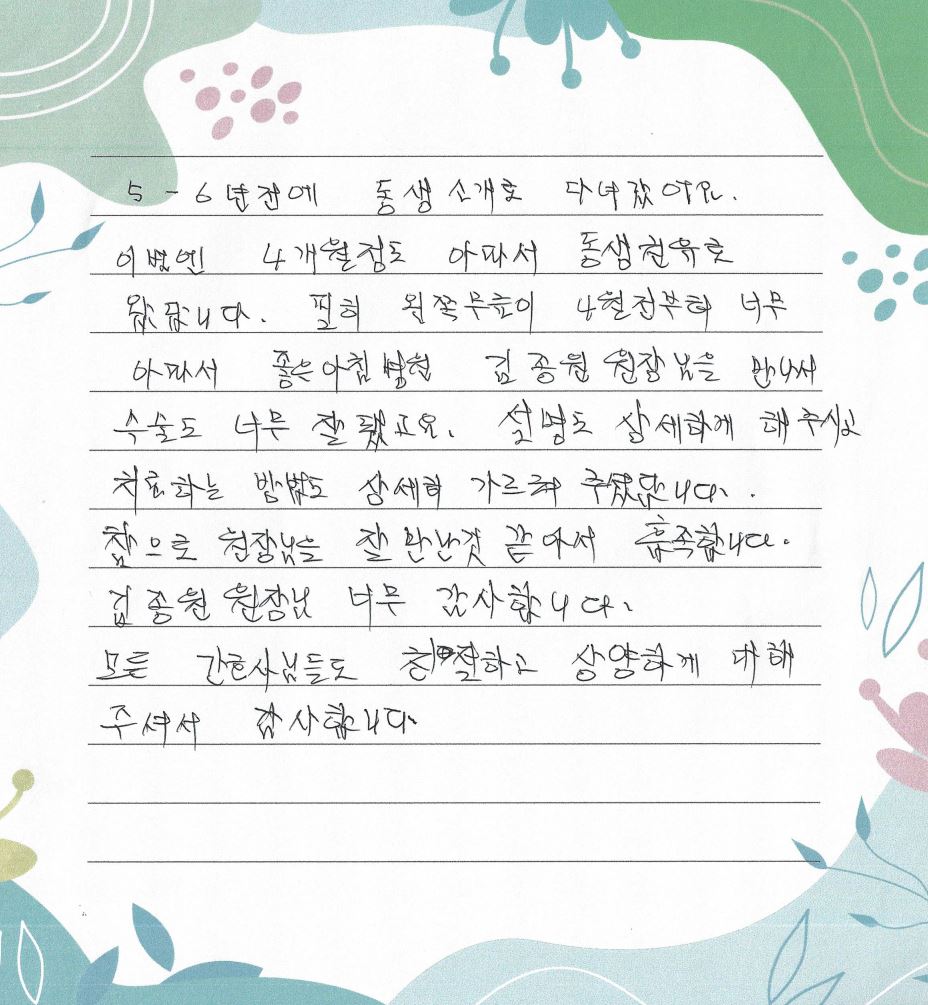 5-6년전에 동생소개로 다녀갔어요.
이번엔 4개월정도 아파서 동생권유로
왔답니다. 필히 왼쪽무릎이 4월전부터 너무
아파서 좋은아침병원 김종원 원장님을 만나서
수술도 너무 잘 됐고요. 설명도 상세하게 해주시고
치료하는 방법도 상세히 가르쳐 주셨답니다.
참으로 원장님을 잘 만난것 같아서 흡족합니다.
김종원 원장님 너무 감사합니다.
모든 간호사님들도 친절하고 상양하게 대해
주셔서 감사합니다